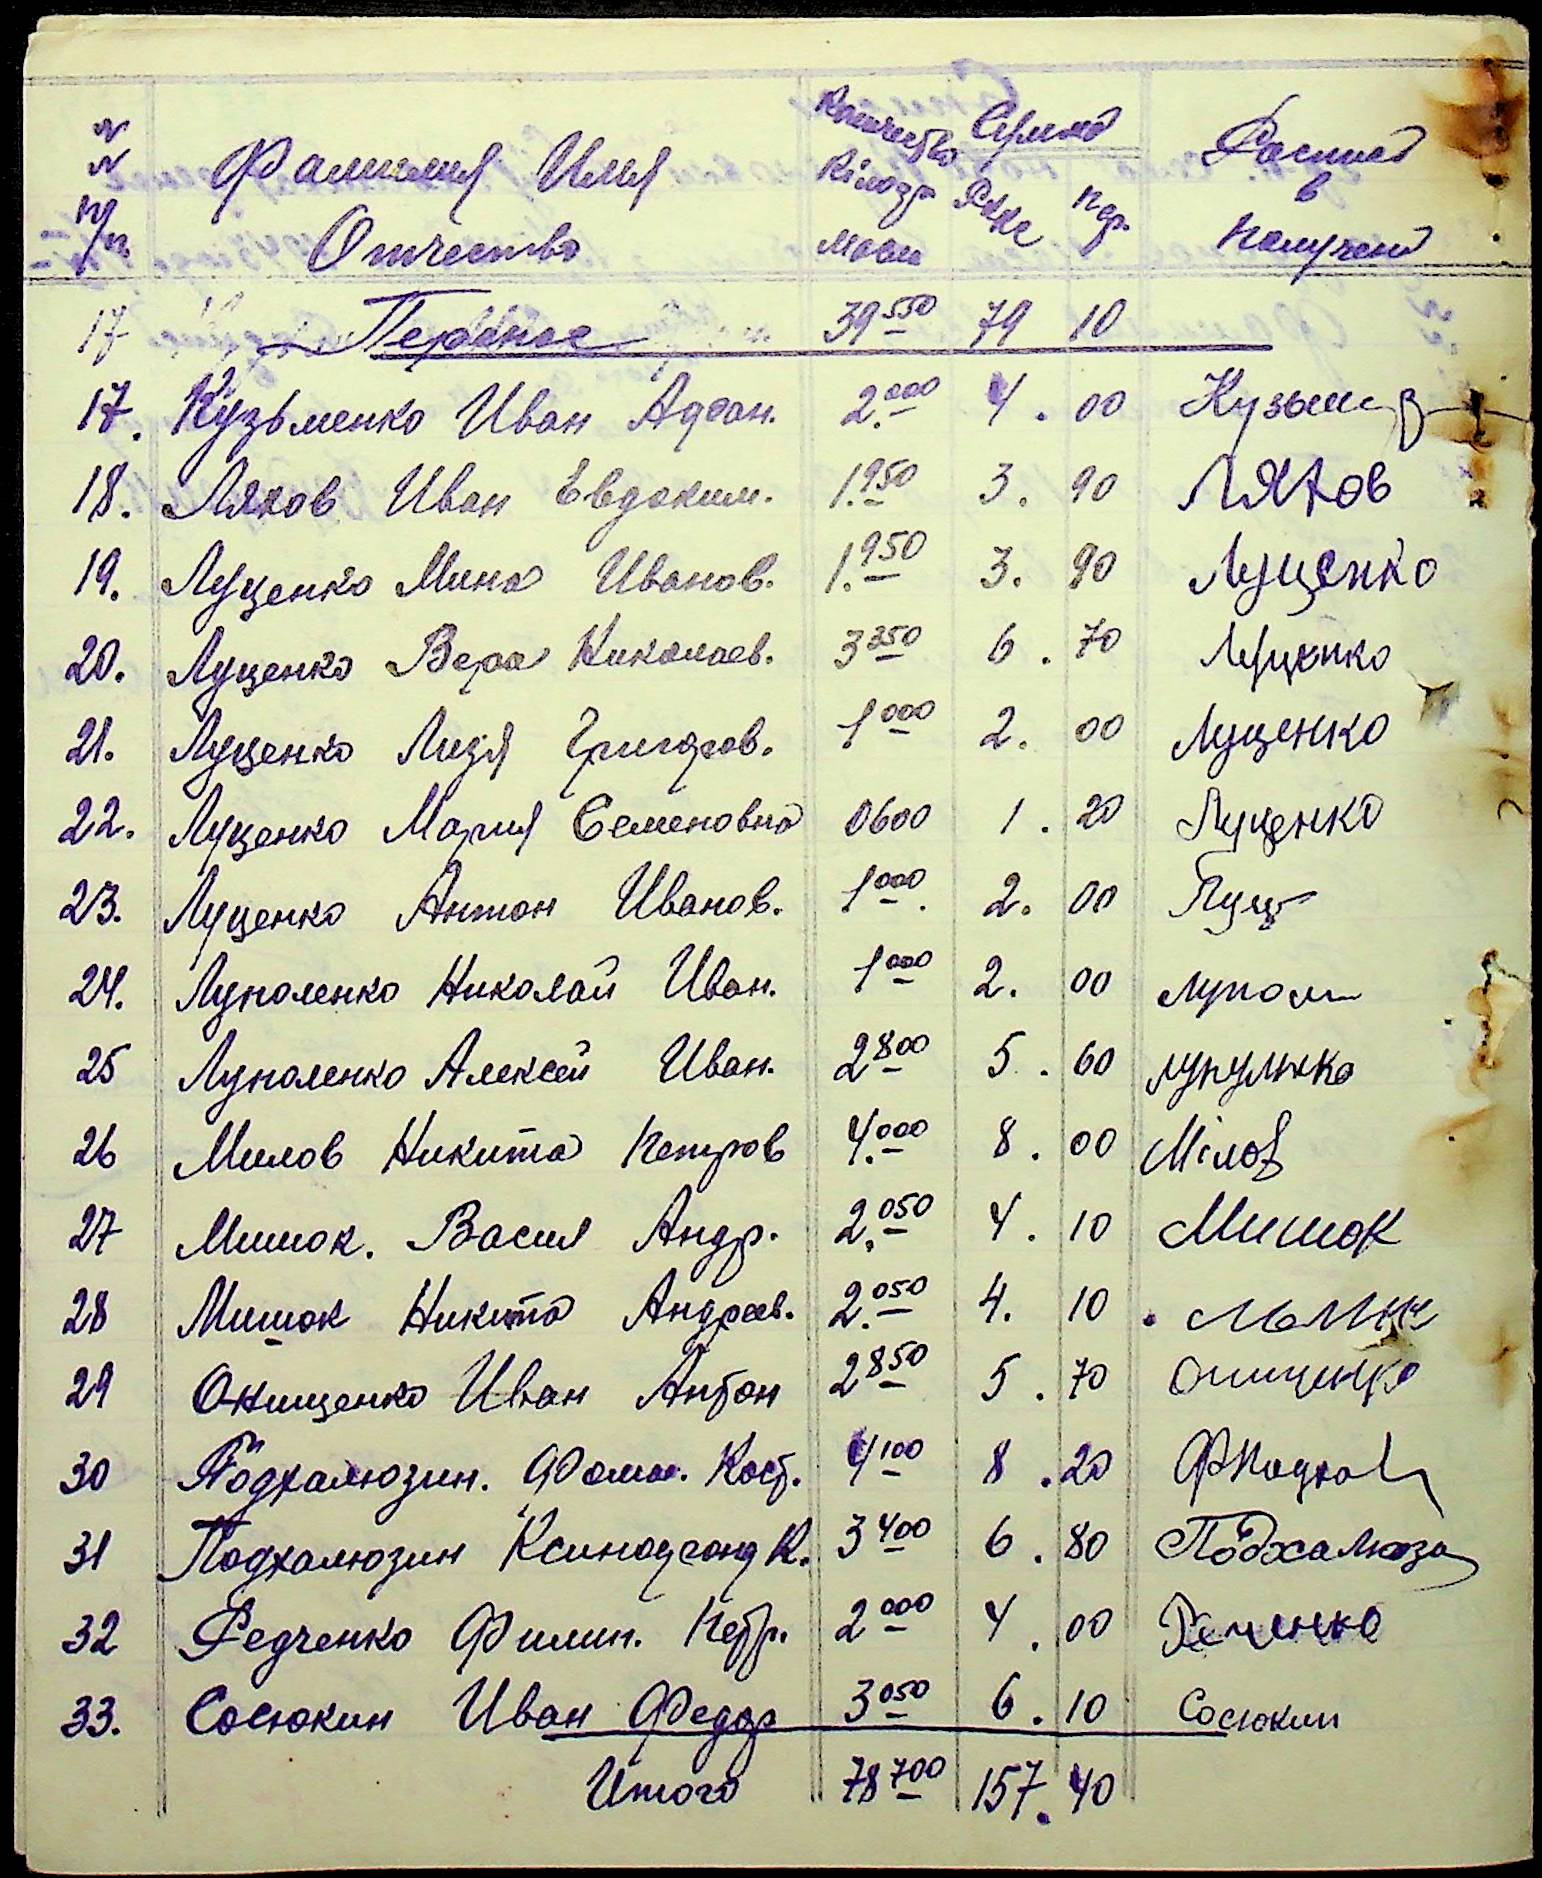 № № п/п Фамилия Имя Отчество Количество Кілогр масла Сумма Р кпс пф. Роспись в получени
17 Перенос 39 550 79 10
17. Кузьменко Иван Адеан. 2.000 4. 00 Кузьме
18. Ляхов Иван Евдоким. 1.950 3. 90 Ляхов
19. Луценко Мина Иванов. 1.950 3. 90 Луценко
20. Луценко Вера Николаев. 3 350 6. 70 Луценко
21. Луценко Лизя Григоров. 1 000 2. 00 Луценко
22. Луценко Мария Семеновна 0600 1. 20 Луценко
23. Луценко Антон Иванов. 1 000. 2. 00 Луц
24. Луполенко Николай Иван. 1 000 2. 00 Лупол
25 Луполенко Алексей Иван. 2 800 5. 60 лупулнко
26 Милов Никита Петров 4.000 8. 00 Мілов
27 Мишок. Васил Андр. 2.050 4. 10 Мишок
28 Мишок Никита Андреев. 2.050 4. 10
29 Онищенко Иван Антон 2 850 5. 70 Онищенко
30 Подхалюзин. Фома. Кост. 4 100 8. 20 ФПодхал
31 Подхалюзин К. 3 400 6. 80 Подхалюзи
32 Редченко Филип. Петр. 2 000 4. 00
33. Сосюкин Иван Федор 3 050 6. 10 Сосюкин
Итого 78 700 157. 40